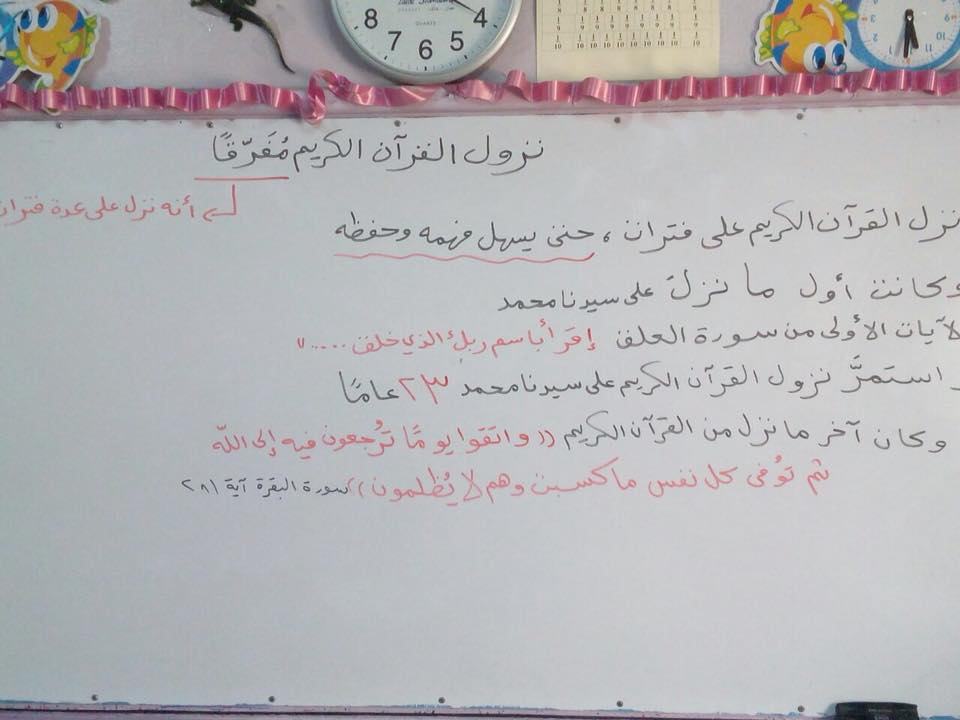 8 7 6 5 4
QUARTZ
نزول القرآن الكريم مُفَرّقًا
أنه نزل على عدة فترات
نزل القرآن الكريم على فترات ، حتى يسهل فهمه وحفظه
وكانت أول ما نزل على سيدنا محمد
لآيات الأولى من سورة العلق إقرأ باسم ربك الذي خلق .....
استمرَّ نزول القرآن الكريم على سيدنا محمد ٢٣ عامًا
وكان آخر ما نزل من القرآن الكريم (( واتقوا يومًا تُرجعون فيه إلى الله
ثم توُفى كل نفس ما كسبت وهم لا يُظلمون )) سورة البقرة آية ٢٨١